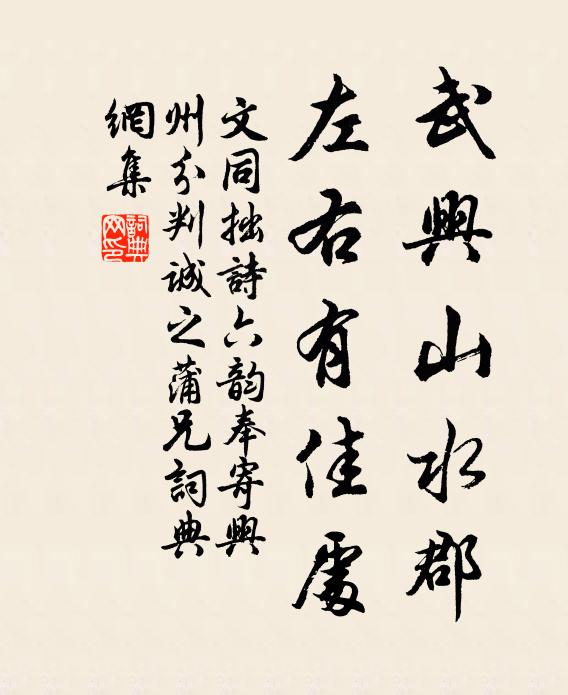 武興山水郡
左右有佳處
文同拙詩六韵奉寄興
州分判誠之蒲兄詞典
網集
詞典網印